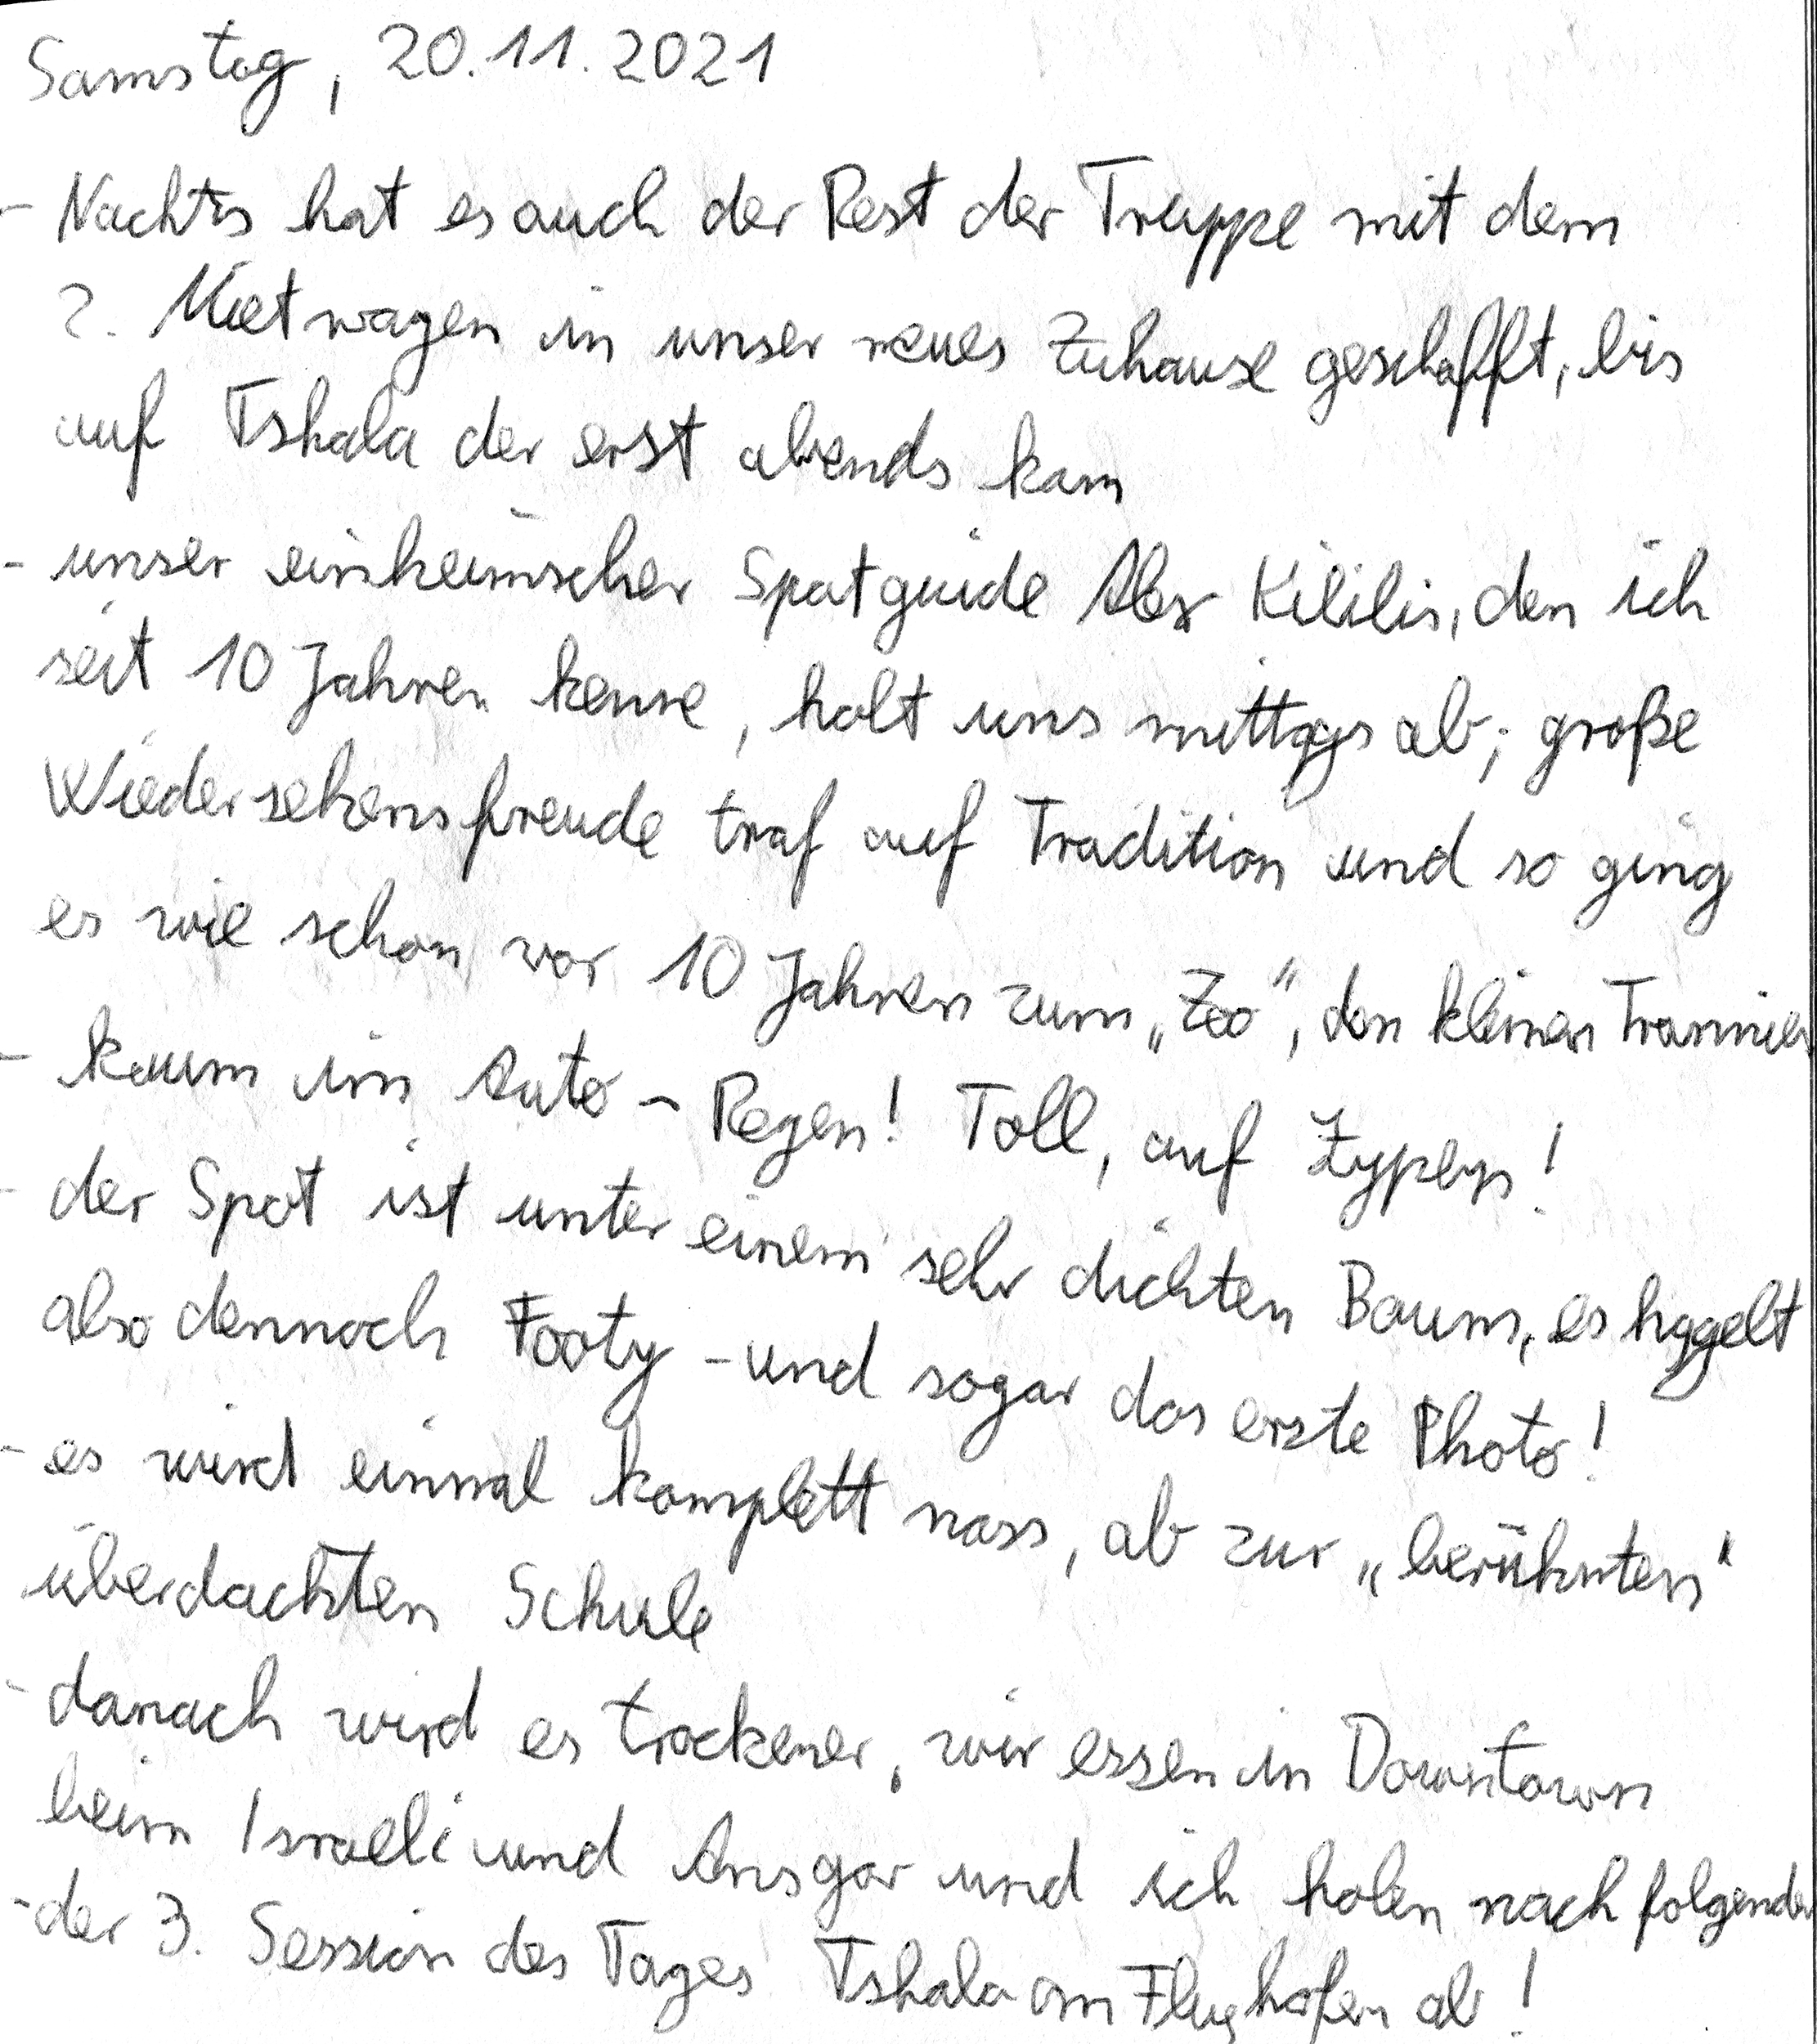 Samstag, 20.11.2021
- Nachts hat es auch der Rest der Truppe mit dem
2. Mietwagen in unser neues Zuhause geschafft, bis
auf Tshala der erst abends kam
- unser einheimischer Spotguide Alex Kililis, den ich
seit 10 Jahren kenne, holt uns mittags ab; große
Wiedersehensfreude traf auf Tradition und so ging
es wie schon vor 10 Jahren zum „Zoo“, den kleinen
- kaum im Auto - Regen! Toll, auf Zypern!
- der Spot ist unter einem sehr dichten Baum, es hagelt
also dennoch Footy - und sogar das erste Photo!
- es wird einmal komplett nass, ab zur „berühmten“
überdachten Schule
- danach wird es trockener, wir essen in Downtown
beim Israeli und Ansgar und ich holen nach folgender
- der 3. Session des Tages Tshala am Flughafen ab!